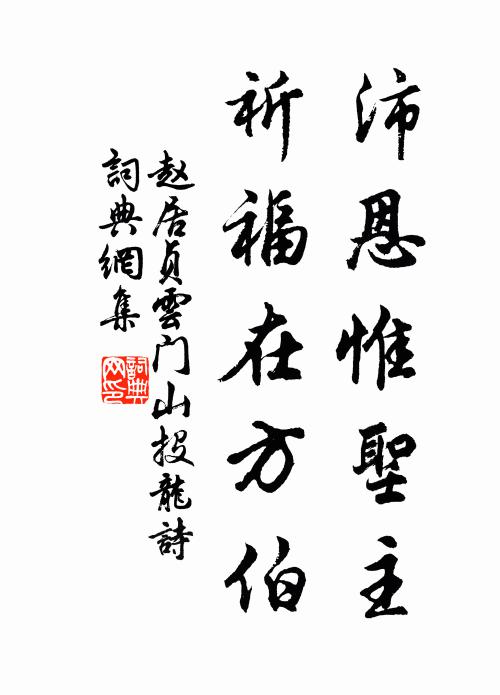 沛恩惟聖主
祈福在方伯
赵居贞雲门山投龍詩
詞典網集
詞典网印